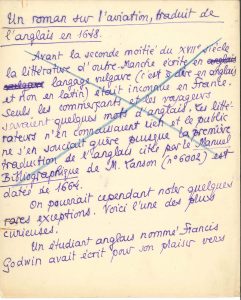 Un roman sur l'aviation, traduit de
l'anglais en 1648.
Avant la seconde moitié du XVIIe siècle
la littérature d'outre-Manche écrite en anglais
langage vulgaire (c'est à dire en anglais
et non en latin) était inconnue en France.
Seuls les commerçants et les voyageurs
savaient quelques mots d'anglais. Les litté-
rateurs n'en connaissaient rien et le public
ne s'en souciait guère puisque la première
traduction de l'anglais citée par le Manuel
Bibliographique de M. Lanson (n° 6002) est
datée de 1664.
On pourrait cependant noter quelques
rares exceptions. Voici l'une des plus
curieuses.
Un étudiant anglais nommé Francis
Godwin avait écrit pour son plaisir vers